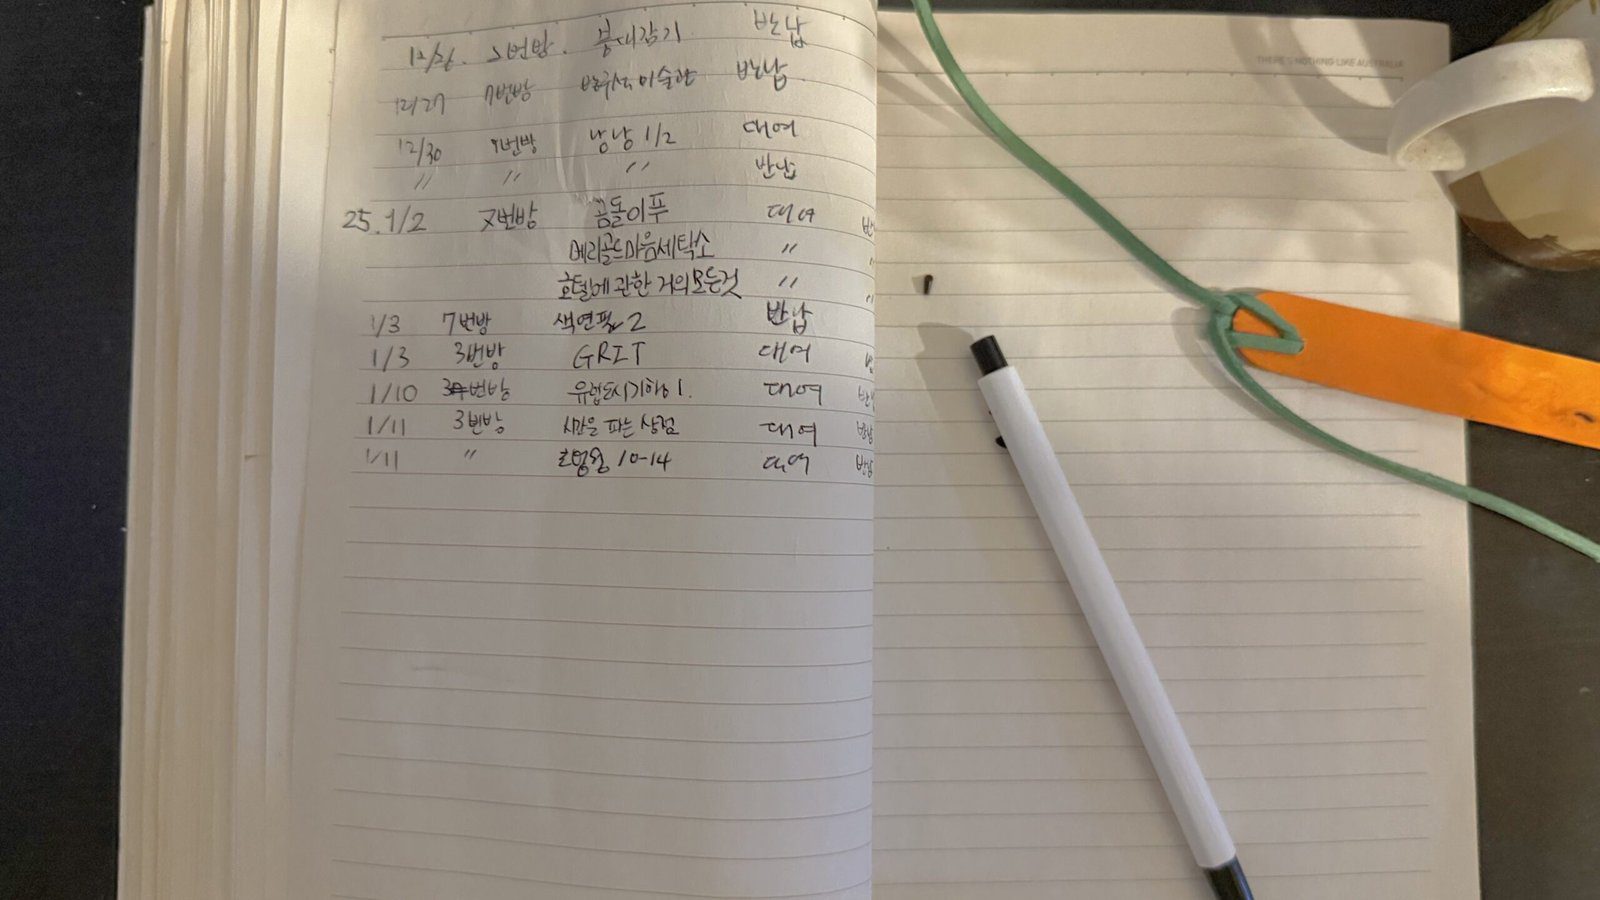 12/26. 5번방. 붕대감기 반납
12/27 7번방 미술관 반납
12/30 7번방 냥냥 1/2 대여
〃 〃 〃 반납
25. 1/2 7번방 곰돌이푸 대여
메리골드마음세탁소 〃 〃
호텔에 관한 거의모든것 〃 〃
1/3 7번방 색연필 2 반납
1/3 3번방 GRIT 대여
1/10 번방 유럽도시기행 1. 대여 반납
1/11 3번방 시간을 파는 상점 대여 반납
1/11 〃 흔한남 10-14 대여 반납
THERE'S NOTHING LIKE AUSTRALIA